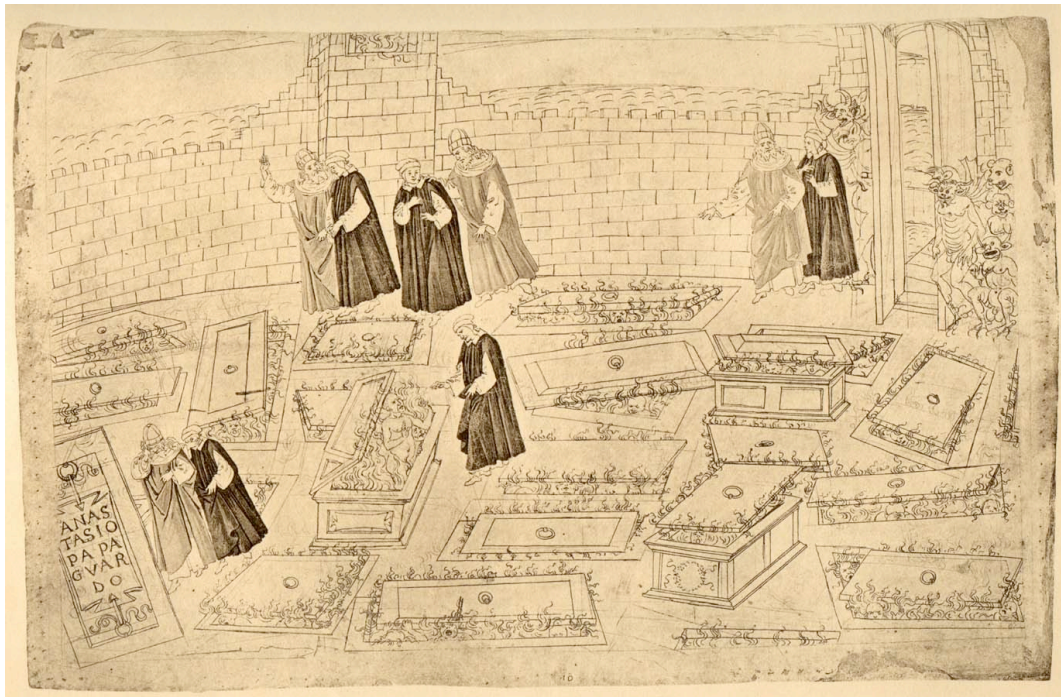 ANAS
TASIO
PAPA
GVAR
DO